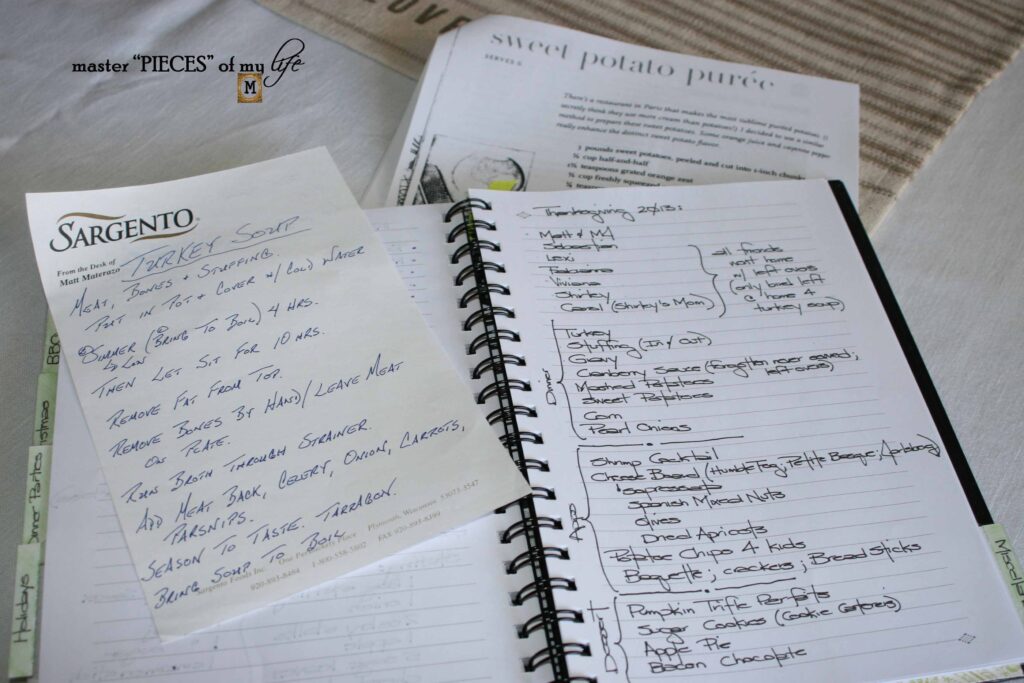 master "PIECES" of my life
M
LOVE
sweet potato purée
SERVES 6
There's a restaurant in Paris that makes the most sublime puréed potatoes. (I
secretly think they use more cream than potatoes!) I decided to use a similar
method to prepare these sweet potatoes. Some orange juice and cayenne peppe
really enhance the distinct sweet potato flavor.
3 pounds sweet potatoes, peeled and cut into 1-inch chunks
cup half-and-half
teaspoons grated orange zest
cup freshly squeezed orange
SARGENTO
From the Desk of
Matt Materazo
TURKEY SOUP
MEAT, BONES & STUFFING.
PUT IN POT & COVER W/ COLD WATER
SIMMER (BRING TO BOIL) 4 HRS.
LOW
THEN LET SIT FOR 10 HRS.
REMOVE FAT FROM TOP.
REMOVE BONES BY HAND/LEAVE MEAT
ON PLATE.
RUN BROTH THROUGH STRAINER.
ADD MEAT BACK, CELERY, ONION, CARROTS,
PARSNIPS.
SEASON TO TASTE. TARRAGON.
BRING SOUP TO BOIL
Sargento Foods Inc. One Persnickety Place Plymouth, Wisconsin 53073-3547
920-893-8484 1-800-558-5802 FAX 920-893-8399
BBQ
Dinner Parties
Holidays
Thanksgiving 2013:
Matt & M
Sebastian
Lexi
Fabianna
Viviana
Shirley
Carol (Shirley's Mom)
all friends
went home
w/ left overs
(only bird left
@ home 4
turkey soup)
Dinner
Turkey
Stuffing (IN / OUT)
Gravy
Cranberry Sauce (forgotten never served;
left overs)
Mashed Potatoes
Sweet Potatoes
Corn
Pearl Onions
Apps
Shrimp Cocktail
Cheese Board (Humble Fog, Petite Basque, Appleberry)
Soppressata
Spanish Mixed Nuts
olives
Dried Apricots
Potatoe Chips 4 kids
Baguette; crackers; Breadsticks
Dessert
Pumpkin Trifle Parfaits
Sugar Cookies (Cookie Cutters)
Apple Pie
Bacon Chocolate